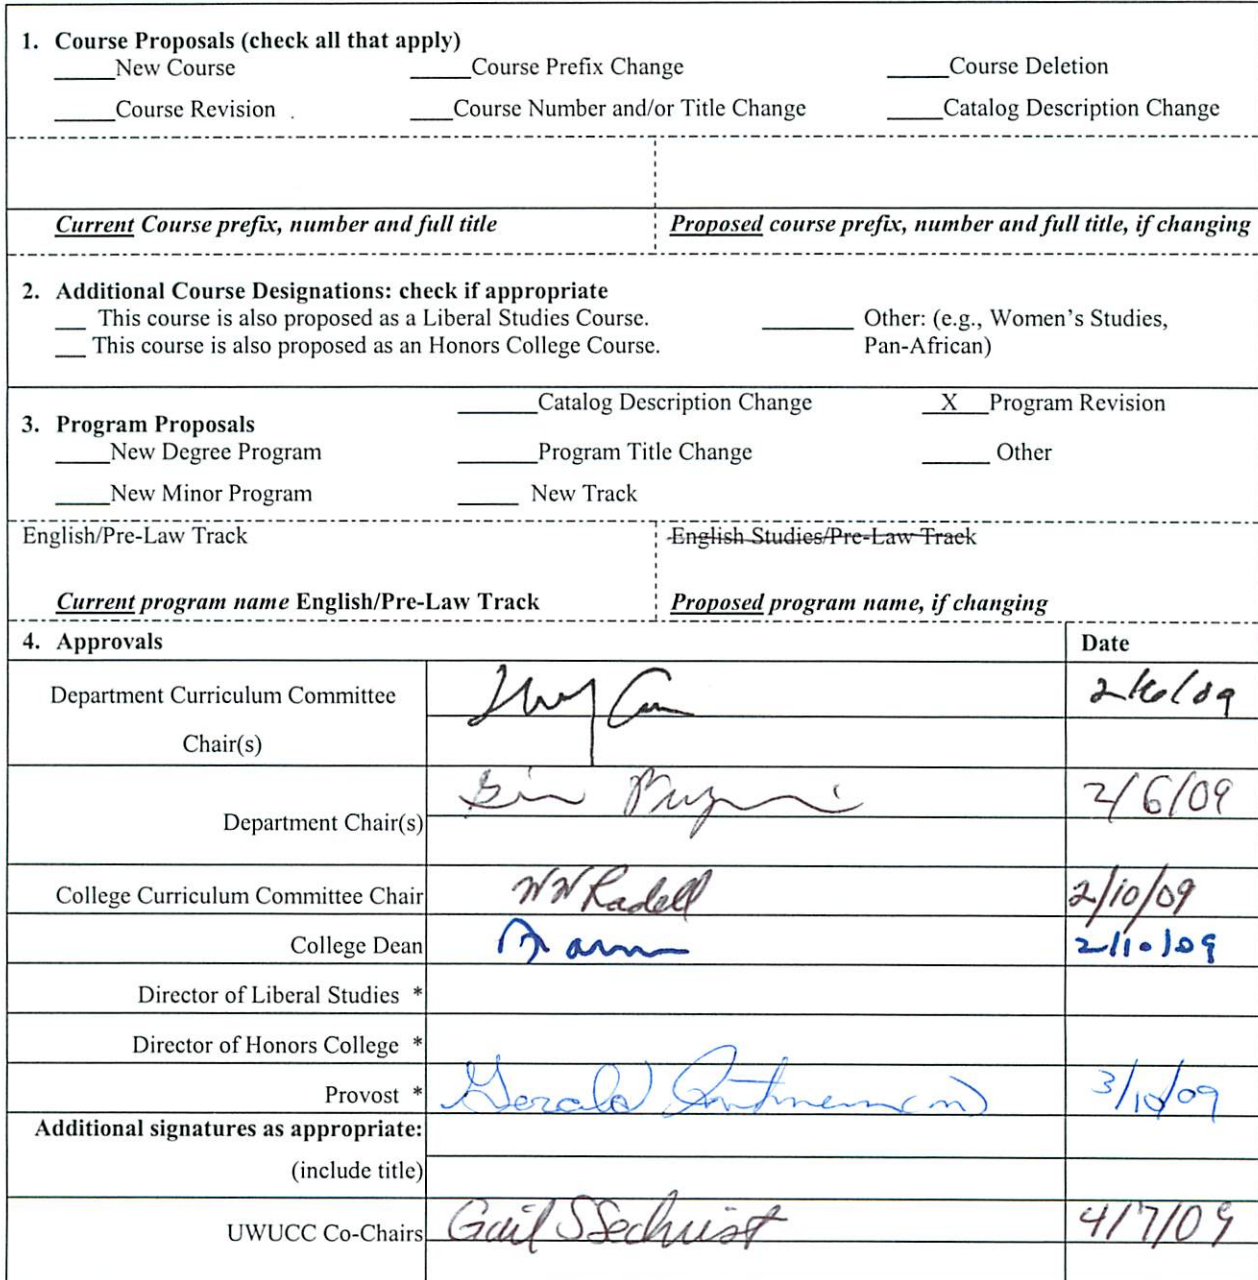 1. Course Proposals (check all that apply)
_____New Course _____Course Prefix Change _____Course Deletion
_____Course Revision _____Course Number and/or Title Change _____Catalog Description Change
Current Course prefix, number and full title Proposed course prefix, number and full title, if changing
2. Additional Course Designations: check if appropriate
___ This course is also proposed as a Liberal Studies Course. ________ Other: (e.g., Women's Studies,
___ This course is also proposed as an Honors College Course. Pan-African)
_______Catalog Description Change __X__Program Revision
3. Program Proposals
_____New Degree Program _______Program Title Change ______ Other
_____New Minor Program ______ New Track
English/Pre-Law Track English Studies/Pre-Law Track
Current program name English/Pre-Law Track Proposed program name, if changing
4. Approvals Date
Department Curriculum Committee
Chair(s)
Department Chair(s) 2/6/09
College Curriculum Committee Chair WW Radell 2/10/09
College Dean 2/10/09
Director of Liberal Studies *
Director of Honors College *
Provost * Gerald 3/10/09
Additional signatures as appropriate:
(include title)
UWUCC Co-Chairs Gail S Sechrist 4/7/09